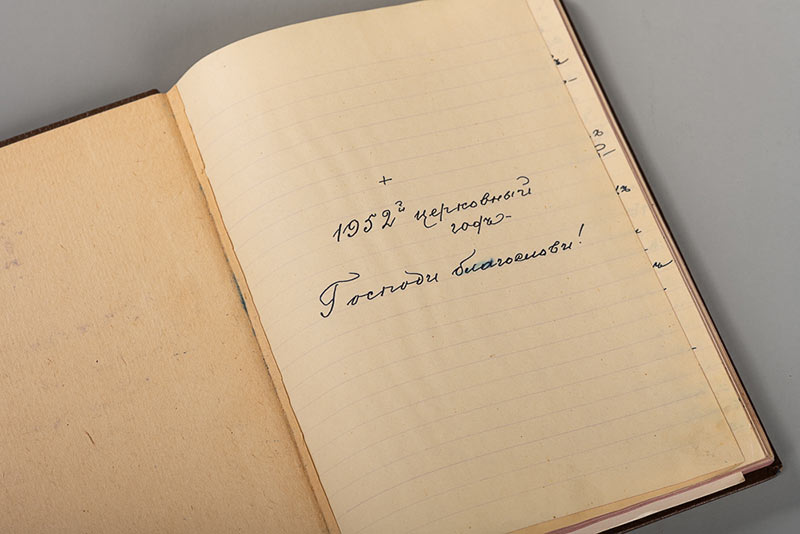 +
1952й церковный
годъ.
Господи благослови!